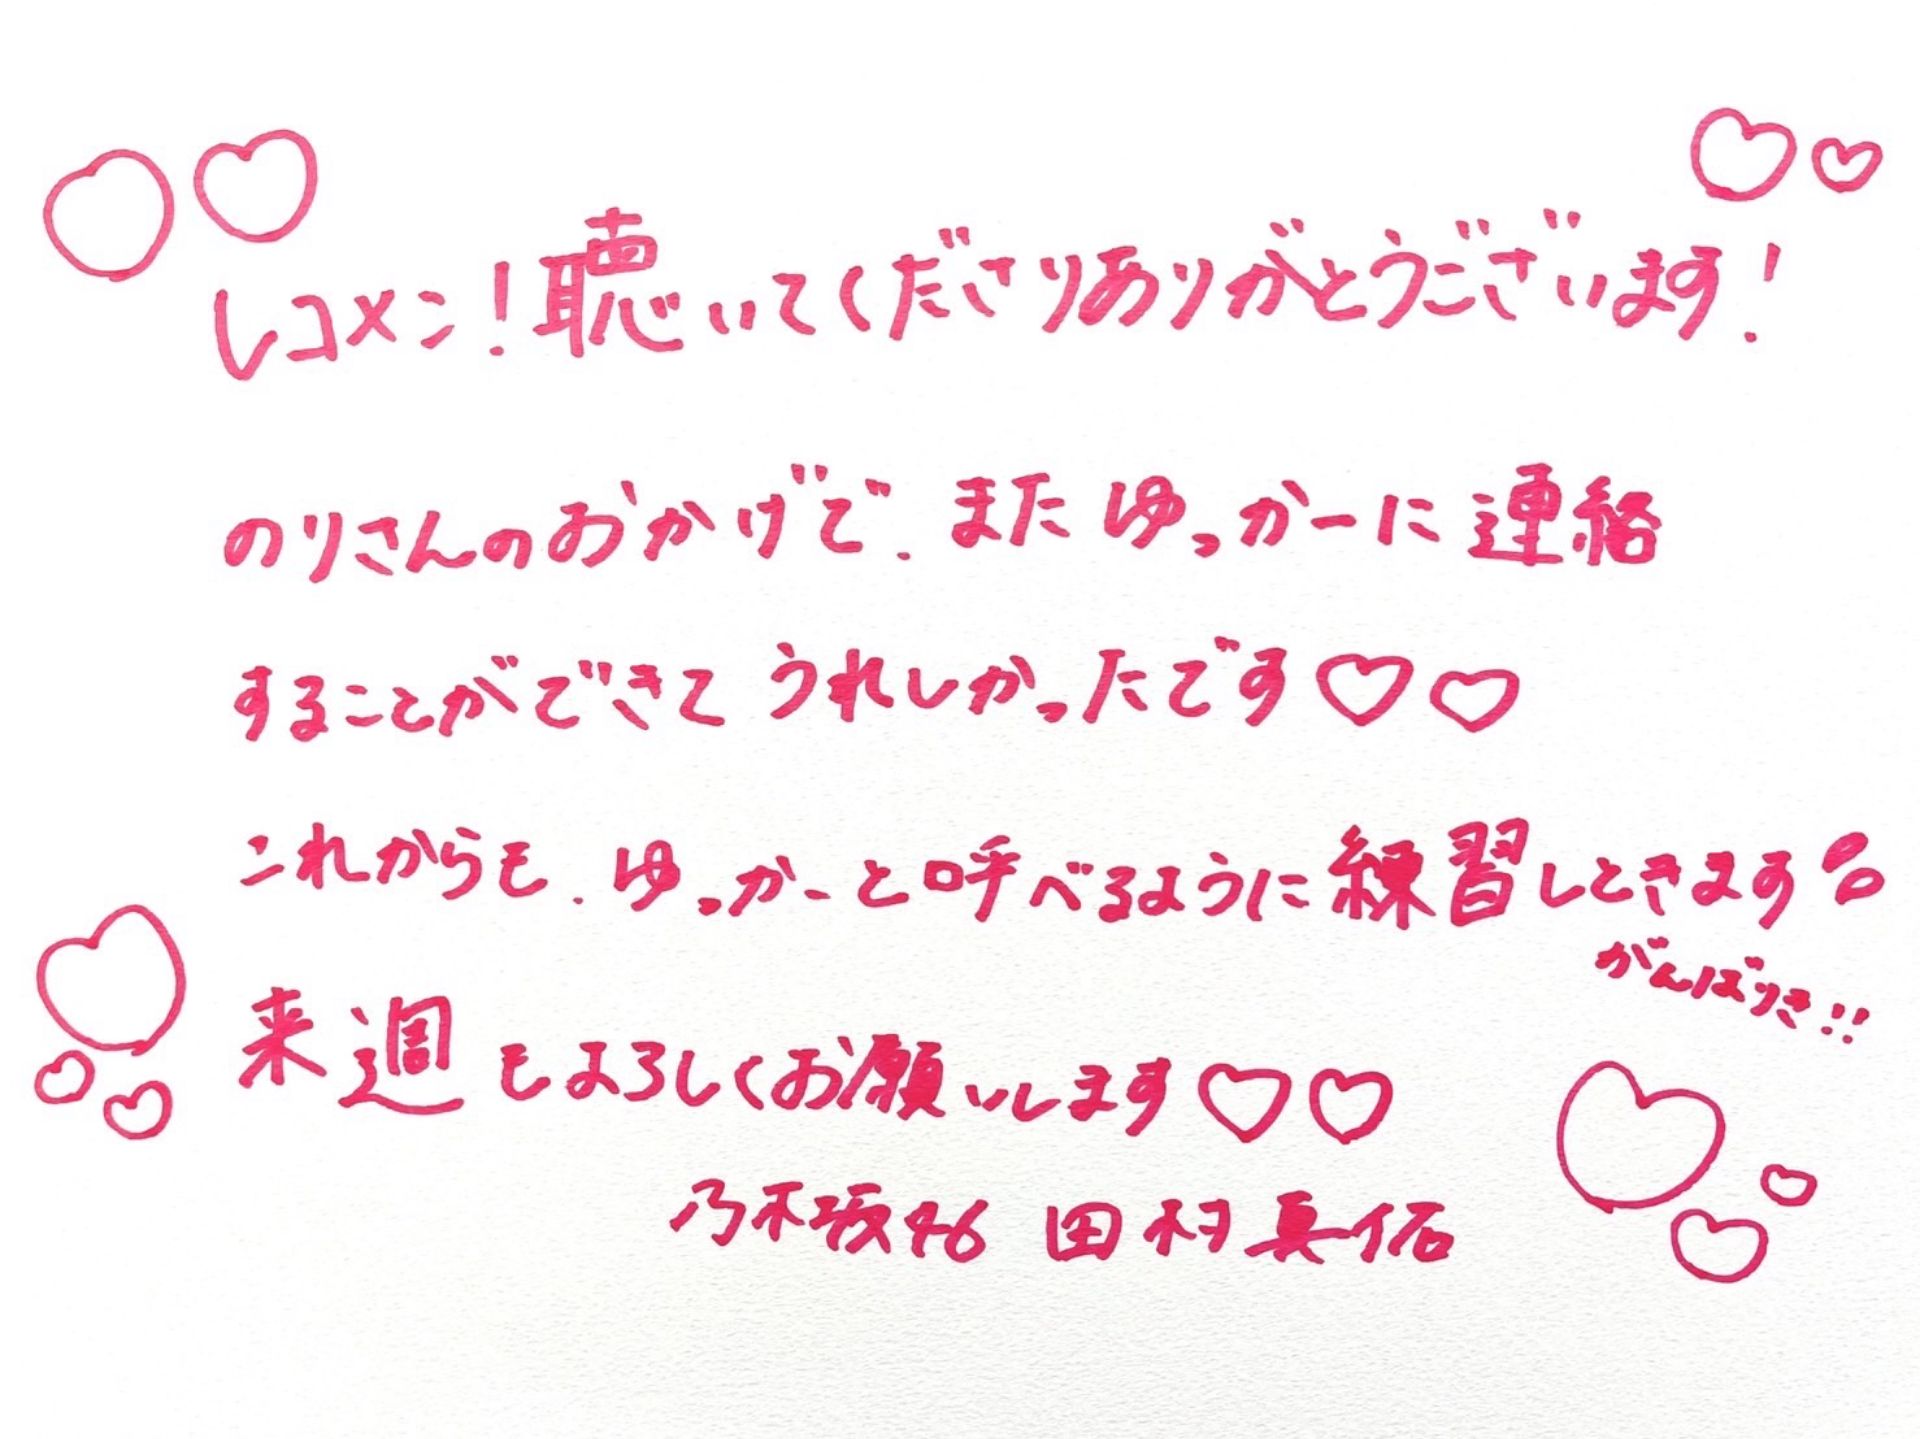 レコメン！聴いてくださりありがとうございます！
のりさんのおかげで、またゆっかーに連絡
することができてうれしかったです♡♡
これからも、ゆっかーと呼べるように練習しときます
がんばりき!!
来週もよろしくお願いします♡♡
乃木坂46 田村真佑